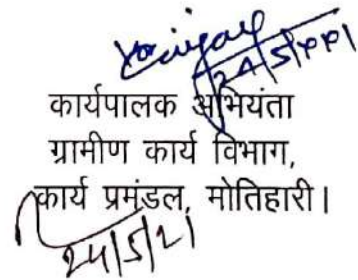 24/5/2021
कार्यपालक अभियंता
ग्रामीण कार्य विभाग,
कार्य प्रमंडल, मोतिहारी।
24/5/21